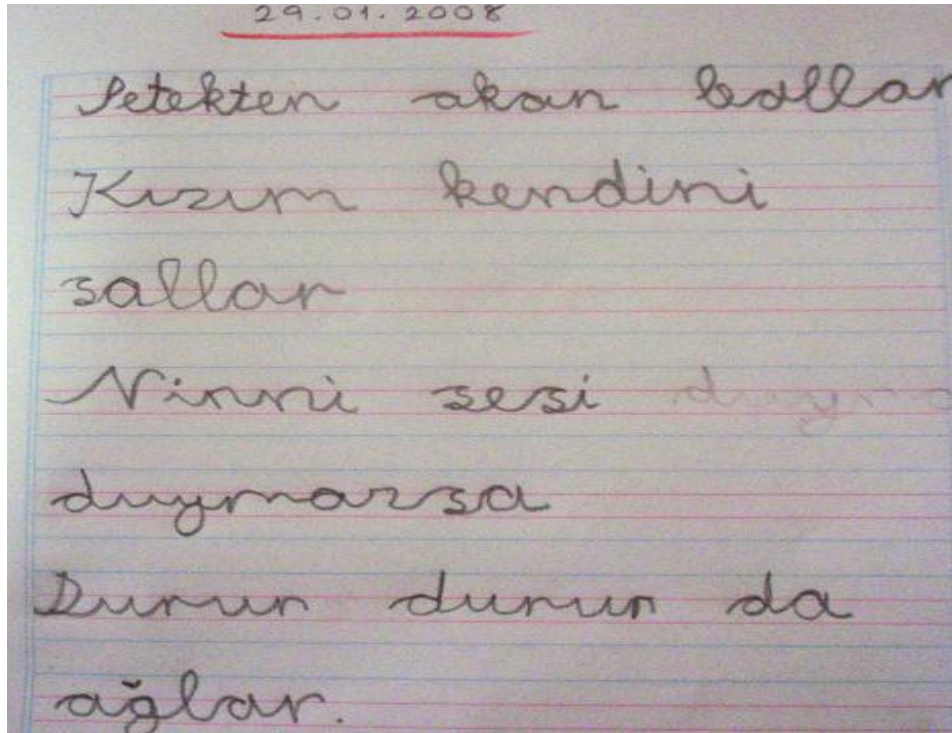 29.01.2008
Petekten akan ballar
Kızım kendini
sallar
Ninni sesi
duymazsa
Durur durur da
ağlar.